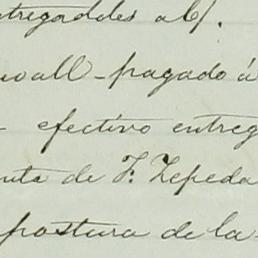 tregaddes al
wall - pagado á
- efectivo entreg
nta de F. Zepeda
postura de la